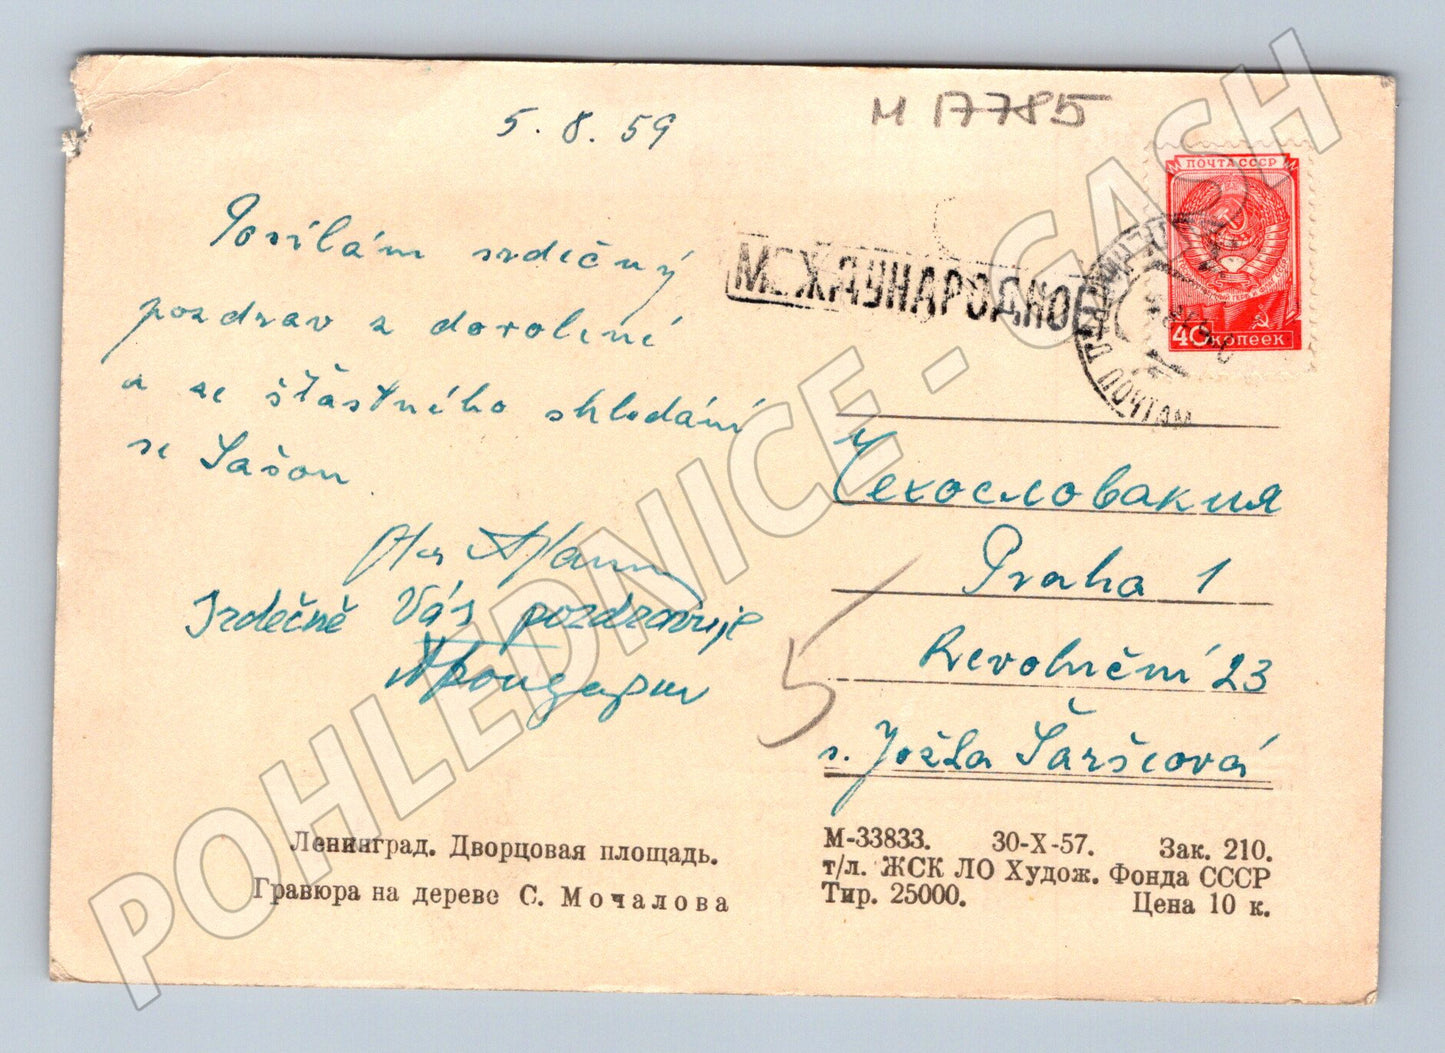 5. 8. 59
M 17785
Posílám srdečný
pozdrav z dovolené
a na šťastného shledání
se Sašou
Srdečně Vás pozdravuje
ПОЧТА СССР
40 КОПЕЕК
МЕЖДУНАРОДНОЕ
Чехословакия
Praha 1
Revoluční 23
s. Jožka Šaršeová
5
Ленинград. Дворцовая площадь.
Гравюра на дереве С. Мочалова
М-33833. 30-X-57. Зак. 210.
т/л. ЖСК ЛО Худож. Фонда СССР
Тир. 25000. Цена 10 к.
POHLEDNICE - GASH